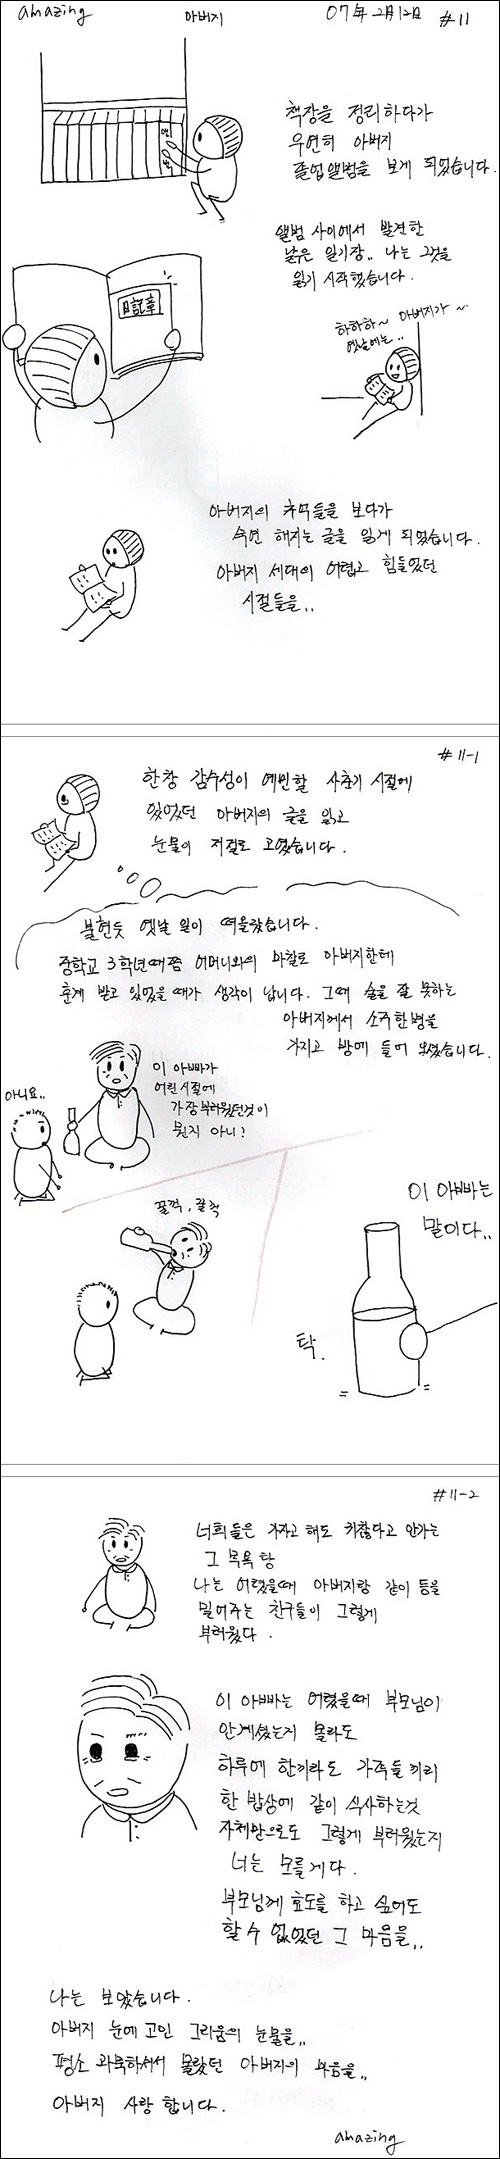 amazing
아버지
07年 2月 12日
#11
책장을 정리하다가
우연히 아버지
졸업앨범을 보게 되었습니다.
앨범 사이에서 발견한
낡은 일기장.. 나는 그것을
읽기 시작했습니다.
日記章
하하하~ 아버지가~
옛날에는..
아버지의 추억들을 보다가
숙연 해지는 글을 읽게 되었습니다.
아버지 세대의 어렵고 힘들었던
시절들을..
#11-1
한창 감수성이 예민할 사춘기 시절에
있었던 아버지의 글을 읽고
눈물이 저절로 고였습니다.
불현듯 옛날 일이 떠올랐습니다.
중학교 3학년때쯤 어머니와의 마찰로 아버지한테
훈계 받고 있었을 때가 생각이 납니다. 그때 술을 잘 못하는
아버지께서 소주한병을
가지고 방에 들어 오셨습니다.
이 아빠가
어린시절에
가장부러웠던것이
뭔지 아니?
아니요..
꿀꺽, 꿀꺽
이 아빠는
말이다..
탁.
#11-2
너희들은 가자고 해도 귀찮다고 안가는
그 목욕탕
나는 어렸을때 아버지랑 같이 등을
밀어주는 친구들이 그렇게
부러웠다.
이 아빠는 어렸을때 부모님이
안계셨는지 몰라도
하루에 한끼라도 가족들 끼리
한 밥상에 같이 식사하는것
자체만으로도 그렇게 부러웠는지
너는 모를게다.
부모님께 효도를 하고 싶어도
할 수 없었던 그 마음을..
나는 보았습니다.
아버지 눈에 고인 그리움의 눈물을..
평소 과묵하셔서 몰랐던 아버지의 마음을..
아버지 사랑 합니다.
amazing